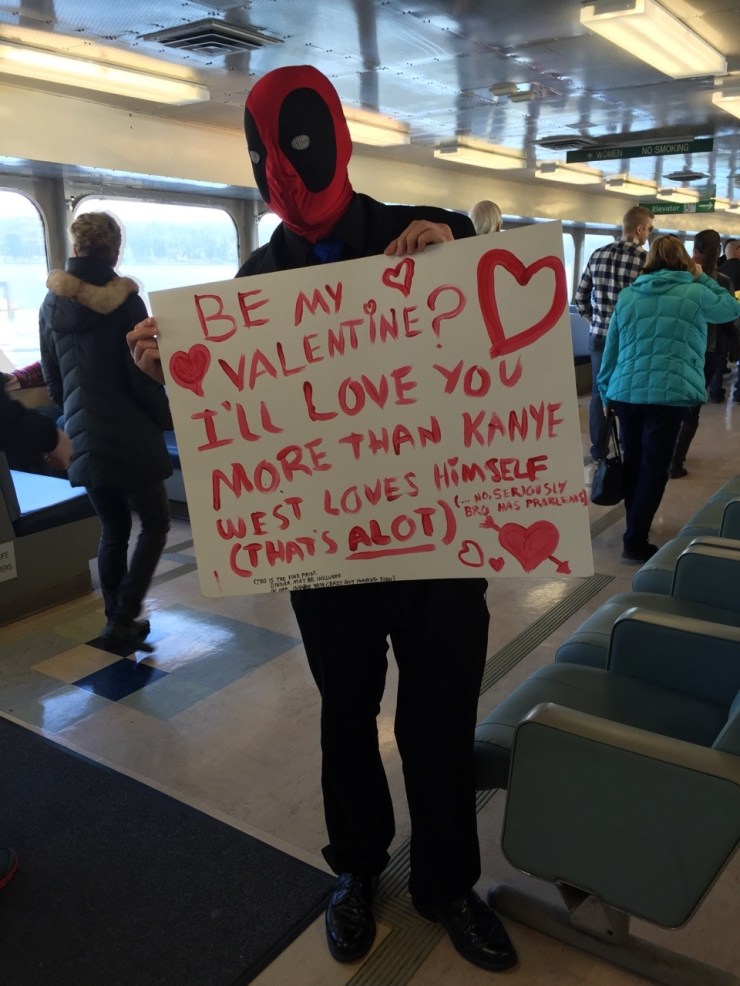 BE MY
VALENTINE?
I'LL LOVE YOU
MORE THAN KANYE
WEST LOVES HIMSELF
(THATS ALOT)
(... NO, SERIOUSLY
BRO HAS PROBLEMS)
(THIS IS THE FINE PRINT
DINNER MAY BE INCLUDED
WOMEN NO SMOKING
Elevator